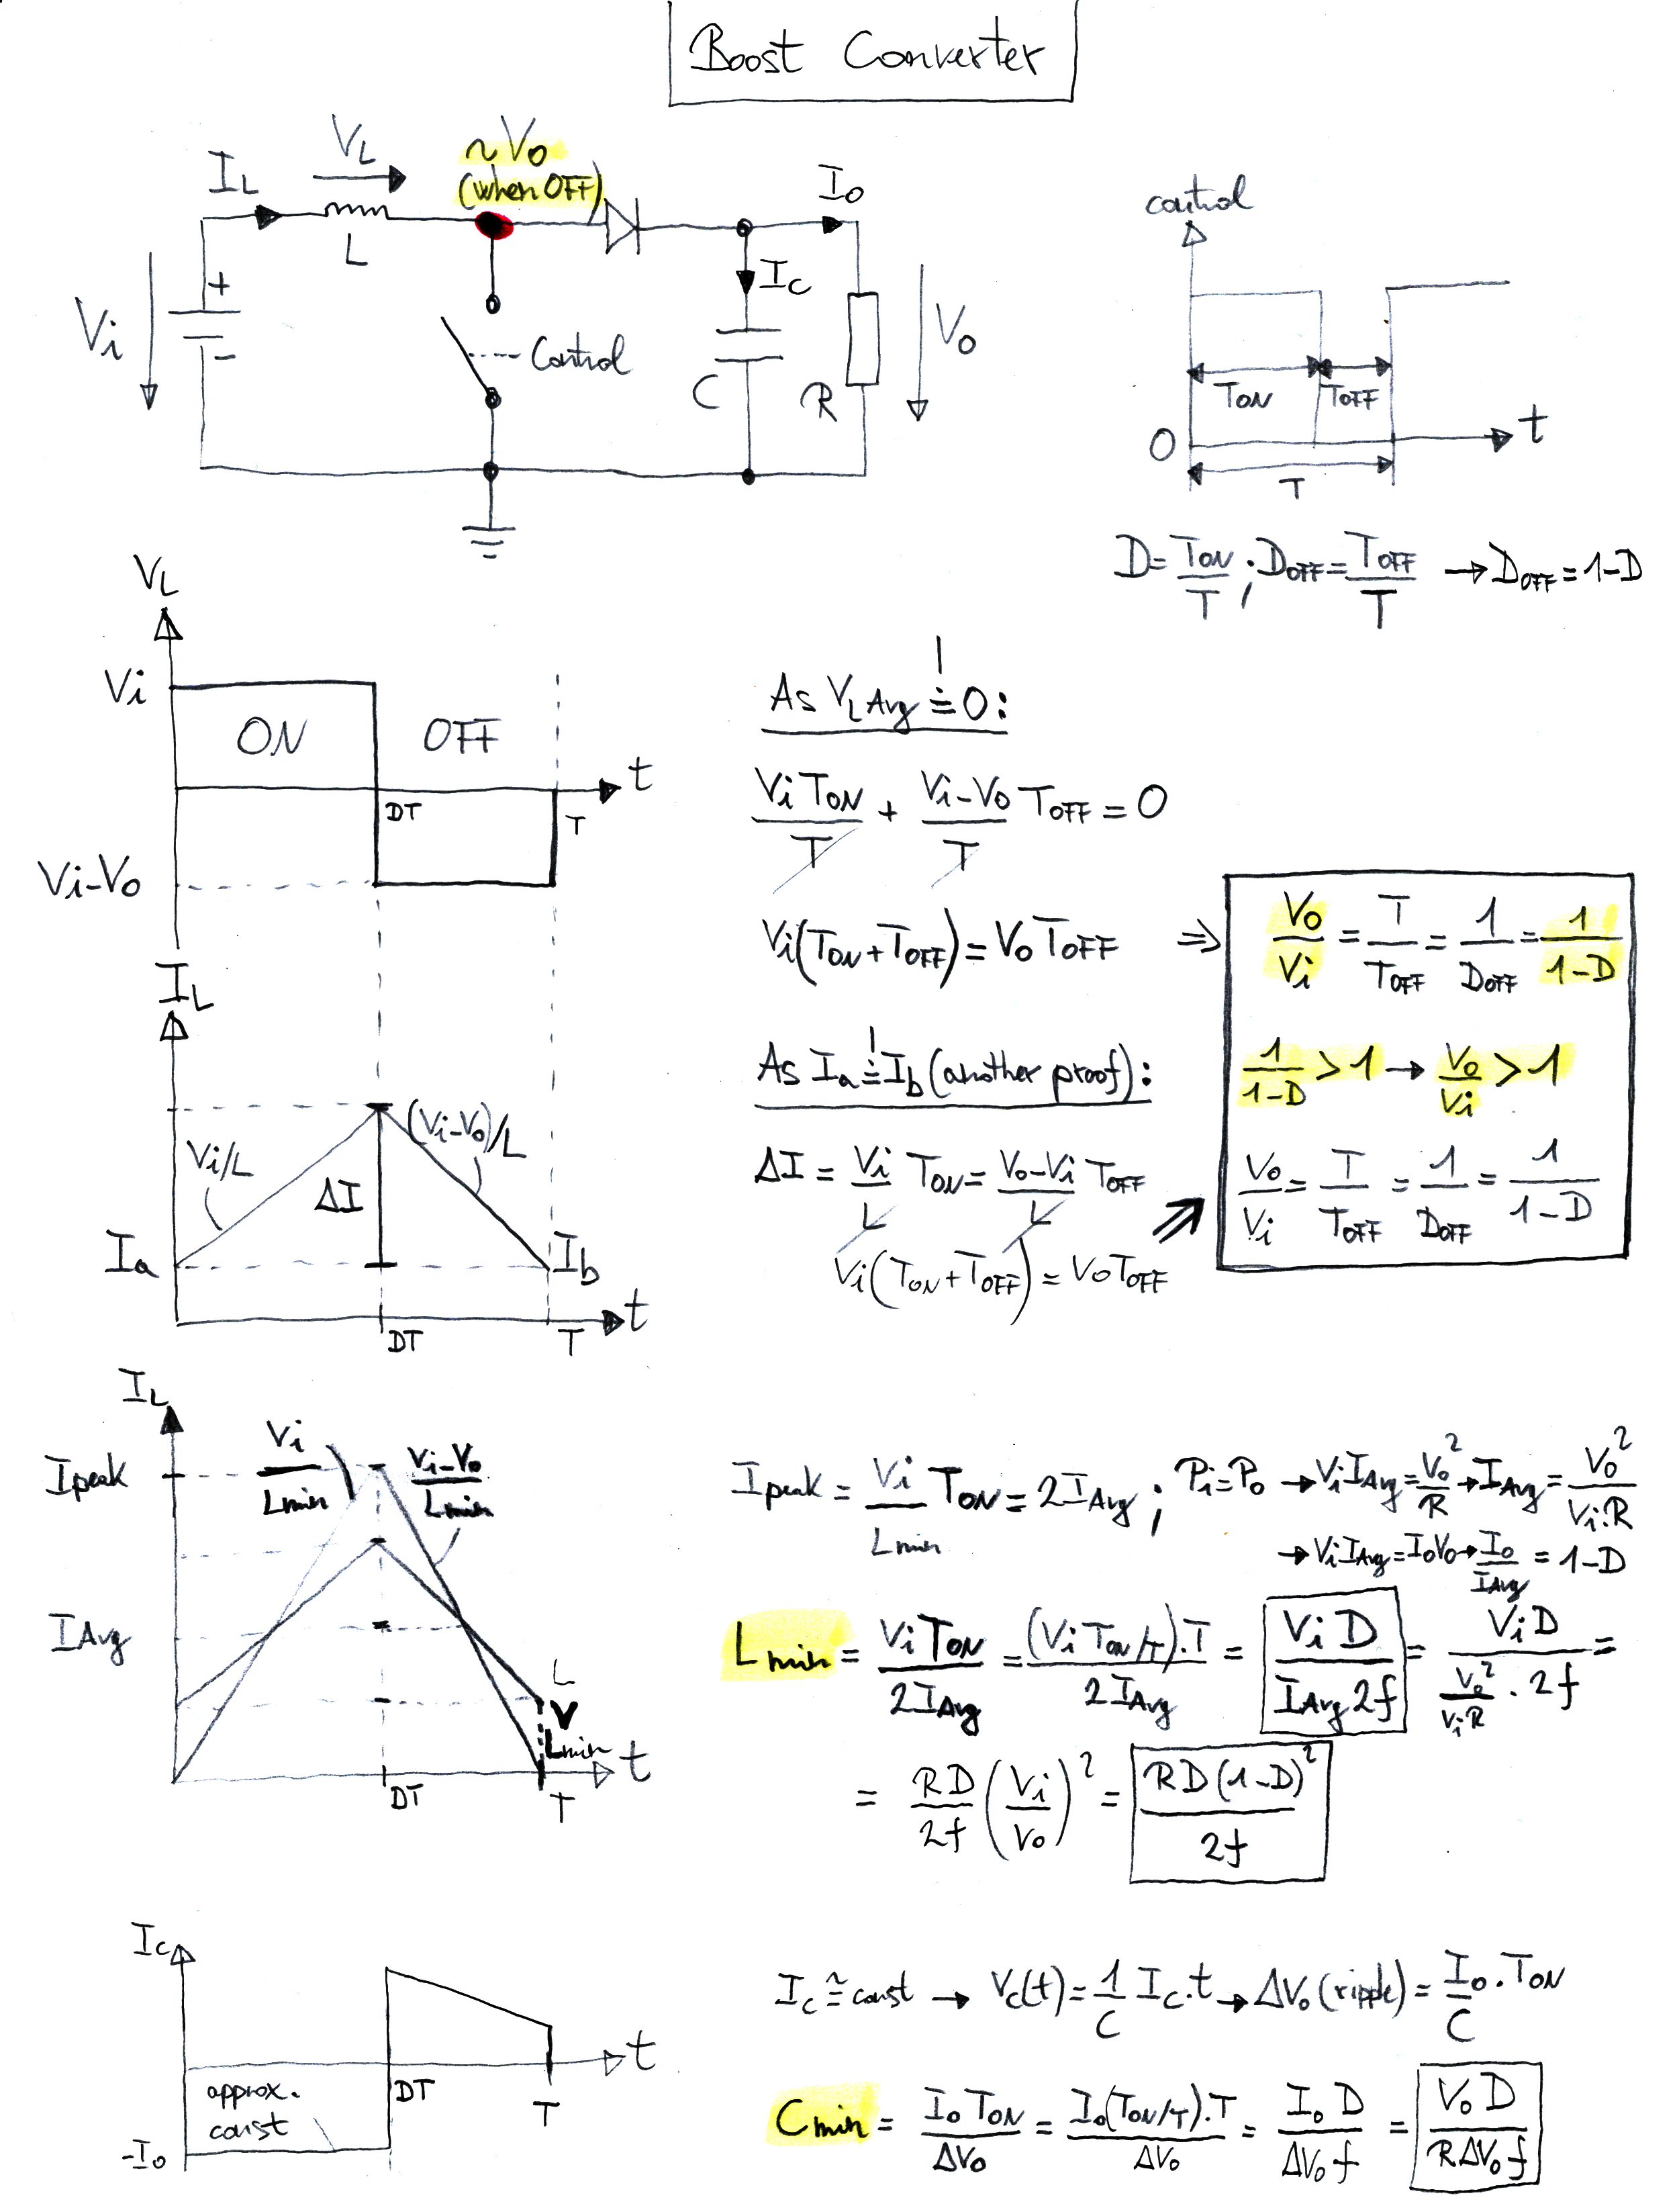 Boost Converter
I_L V_L ~V_o
(when OFF)
I_o
L
V_i + -
Control
I_C
C
R
V_o
control
T_ON T_OFF
0 t
T
D = T_ON/T ; D_OFF = T_OFF/T → D_OFF = 1-D
V_L
V_i
ON OFF
t
DT T
V_i-V_o
As V_L Avg ≐ 0:
!
V_i T_ON/T + (V_i-V_o)/T T_OFF = 0
V_i(T_ON+T_OFF) = V_o T_OFF ⇒
V_o/V_i = T/T_OFF = 1/D_OFF = 1/(1-D)
1/(1-D) > 1 → V_o/V_i > 1
V_o/V_i = T/T_OFF = 1/D_OFF = 1/(1-D)
I_L
V_i/L
ΔI
(V_i-V_o)/L
I_a I_b
t
DT T
As I_a ≐ I_b (another proof):
!
ΔI = V_i/L T_ON = (V_o-V_i)/L T_OFF
V_i(T_ON+T_OFF) = V_o T_OFF ⇒
I_L
I_peak
V_i/L_min
(V_i-V_o)/L_min
I_Avg
L
V
L_min
t
DT T
I_peak = V_i/L_min T_ON = 2I_Avg ; P_i=P_o → V_i I_Avg = V_o²/R → I_Avg = V_o²/(V_i.R)
→ V_i I_Avg = I_o V_o → I_o/I_Avg = 1-D
L_min = V_i T_ON/(2I_Avg) = (V_i T_ON/T).T/(2I_Avg) = V_i D/(I_Avg 2f) = V_i D/(V_o²/(V_i R) . 2f) =
= RD/2f (V_i/V_o)² = RD(1-D)²/2f
I_C
approx.
const
-I_o
t
DT
T
I_C ≅ const → V_C(t) = 1/C I_C.t → ΔV_o (ripple) = I_o/C . T_ON
C_min = I_o T_ON/ΔV_o = I_o(T_ON/T).T/ΔV_o = I_o D/(ΔV_o f) = V_o D/(RΔV_o f)